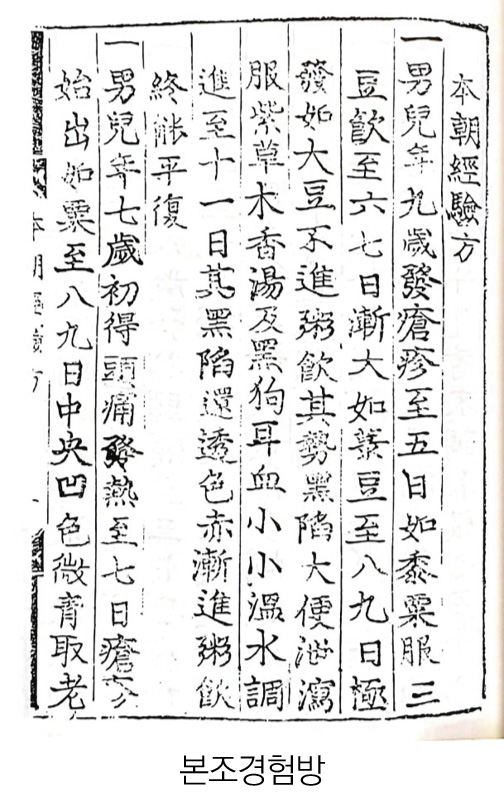 本朝經驗方
一男兒年九歲發瘡疹至五日如黍粟服三
豆飮至六七日漸大如菉豆至八九日極
發如大豆不進粥飮其勢黑陷大便泄瀉
服紫草木香湯及黑狗耳血小小溫水調
進至十一日其黑陷還透色赤漸進粥飮
終能平復
一男兒年七歲初得頭痛發熱至七日瘡疹
始出如粟至八九日中央凹色微靑取老
本朝經驗方 一
본조경험방